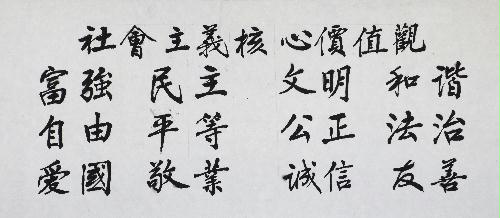 社會主義核心價值觀
富強 民主 文明 和谐
自由 平等 公正 法治
愛國 敬業 誠信 友善